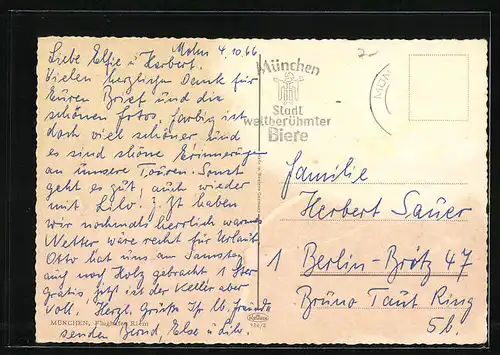 Mohn 4.10.66
Liebe Elfie u Herbert.
Vielen herzlichen Dank für
Euren Brief und die
schönen Fotos, farbig ist
doch viel schöner und
es sind shöne Erinnerungen
an unsere Touren. Sonst
geht es gut, auch wieder
mit Lilo. z. Zt haben
wir nochmals herrlich warmes
Wetter wäre recht für Urlaub
Otto hat uns am Samstag
auch noch Holz gebracht 1 Ster
gratis jetzt ist der Keller aber
voll. Herzl. Grüße Ihr lb. Freunde
senden Bernd, Else u Lilo.
MÜNCHEN, Flughafen Riem
München
Stadt
weltberühmter
Biere
MÜN
Familie
Herbert Sauer
1 Berlin-Britz 47
Bruno Taut Ring
5b.